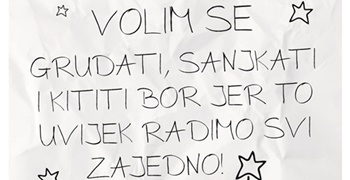 VOLIM SE
GRUDATI, SANJKATI
I KITITI BOR JER TO
UVIJEK RADIMO SVI
ZAJEDNO!